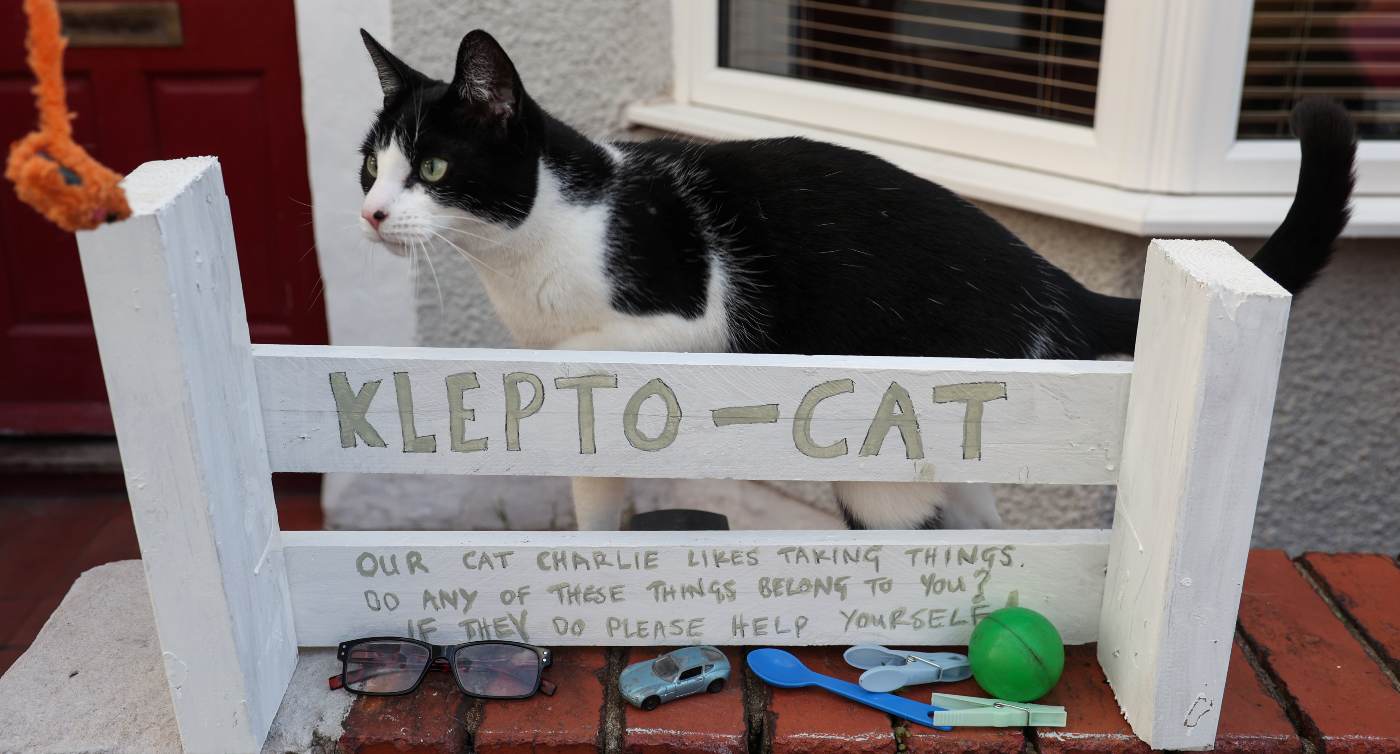 KLEPTO-CAT
OUR CAT CHARLIE LIKES TAKING THINGS.
DO ANY OF THESE THINGS BELONG TO YOU?
IF THEY DO PLEASE HELP YOURSELF